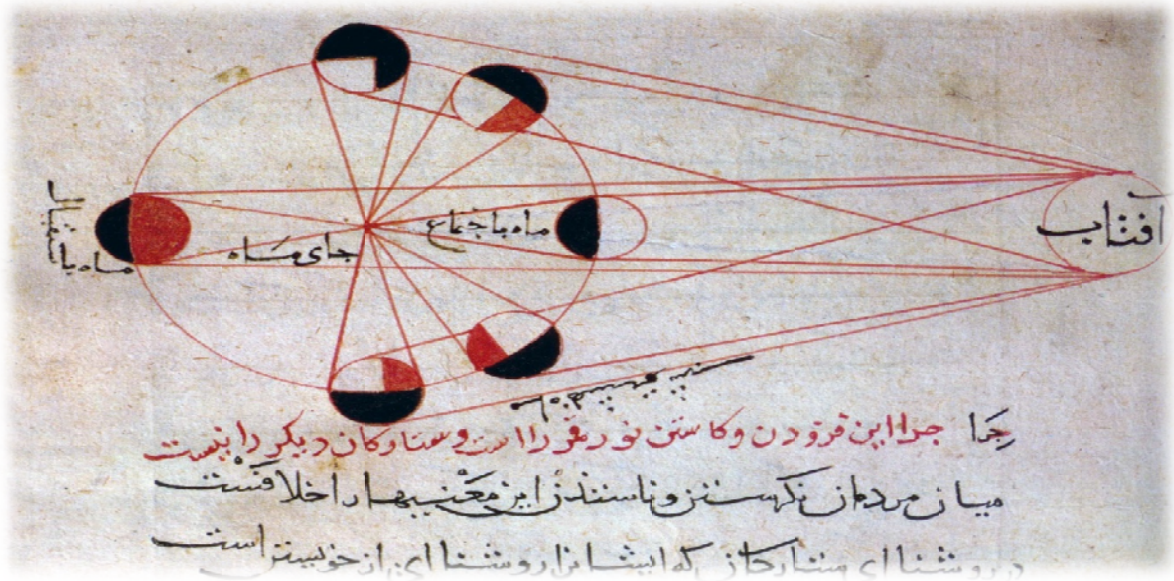 افتاب
ماه باجتماع
جای ماه
ماه باستقبال
جرا جرا این فزودن وکاستن نور قمر را است وستارکان دیکر را نیست
میان مردمان این معنیها را اخلافست
در روشناای ستارکان که ایشانرا روشناای از خویشتن است